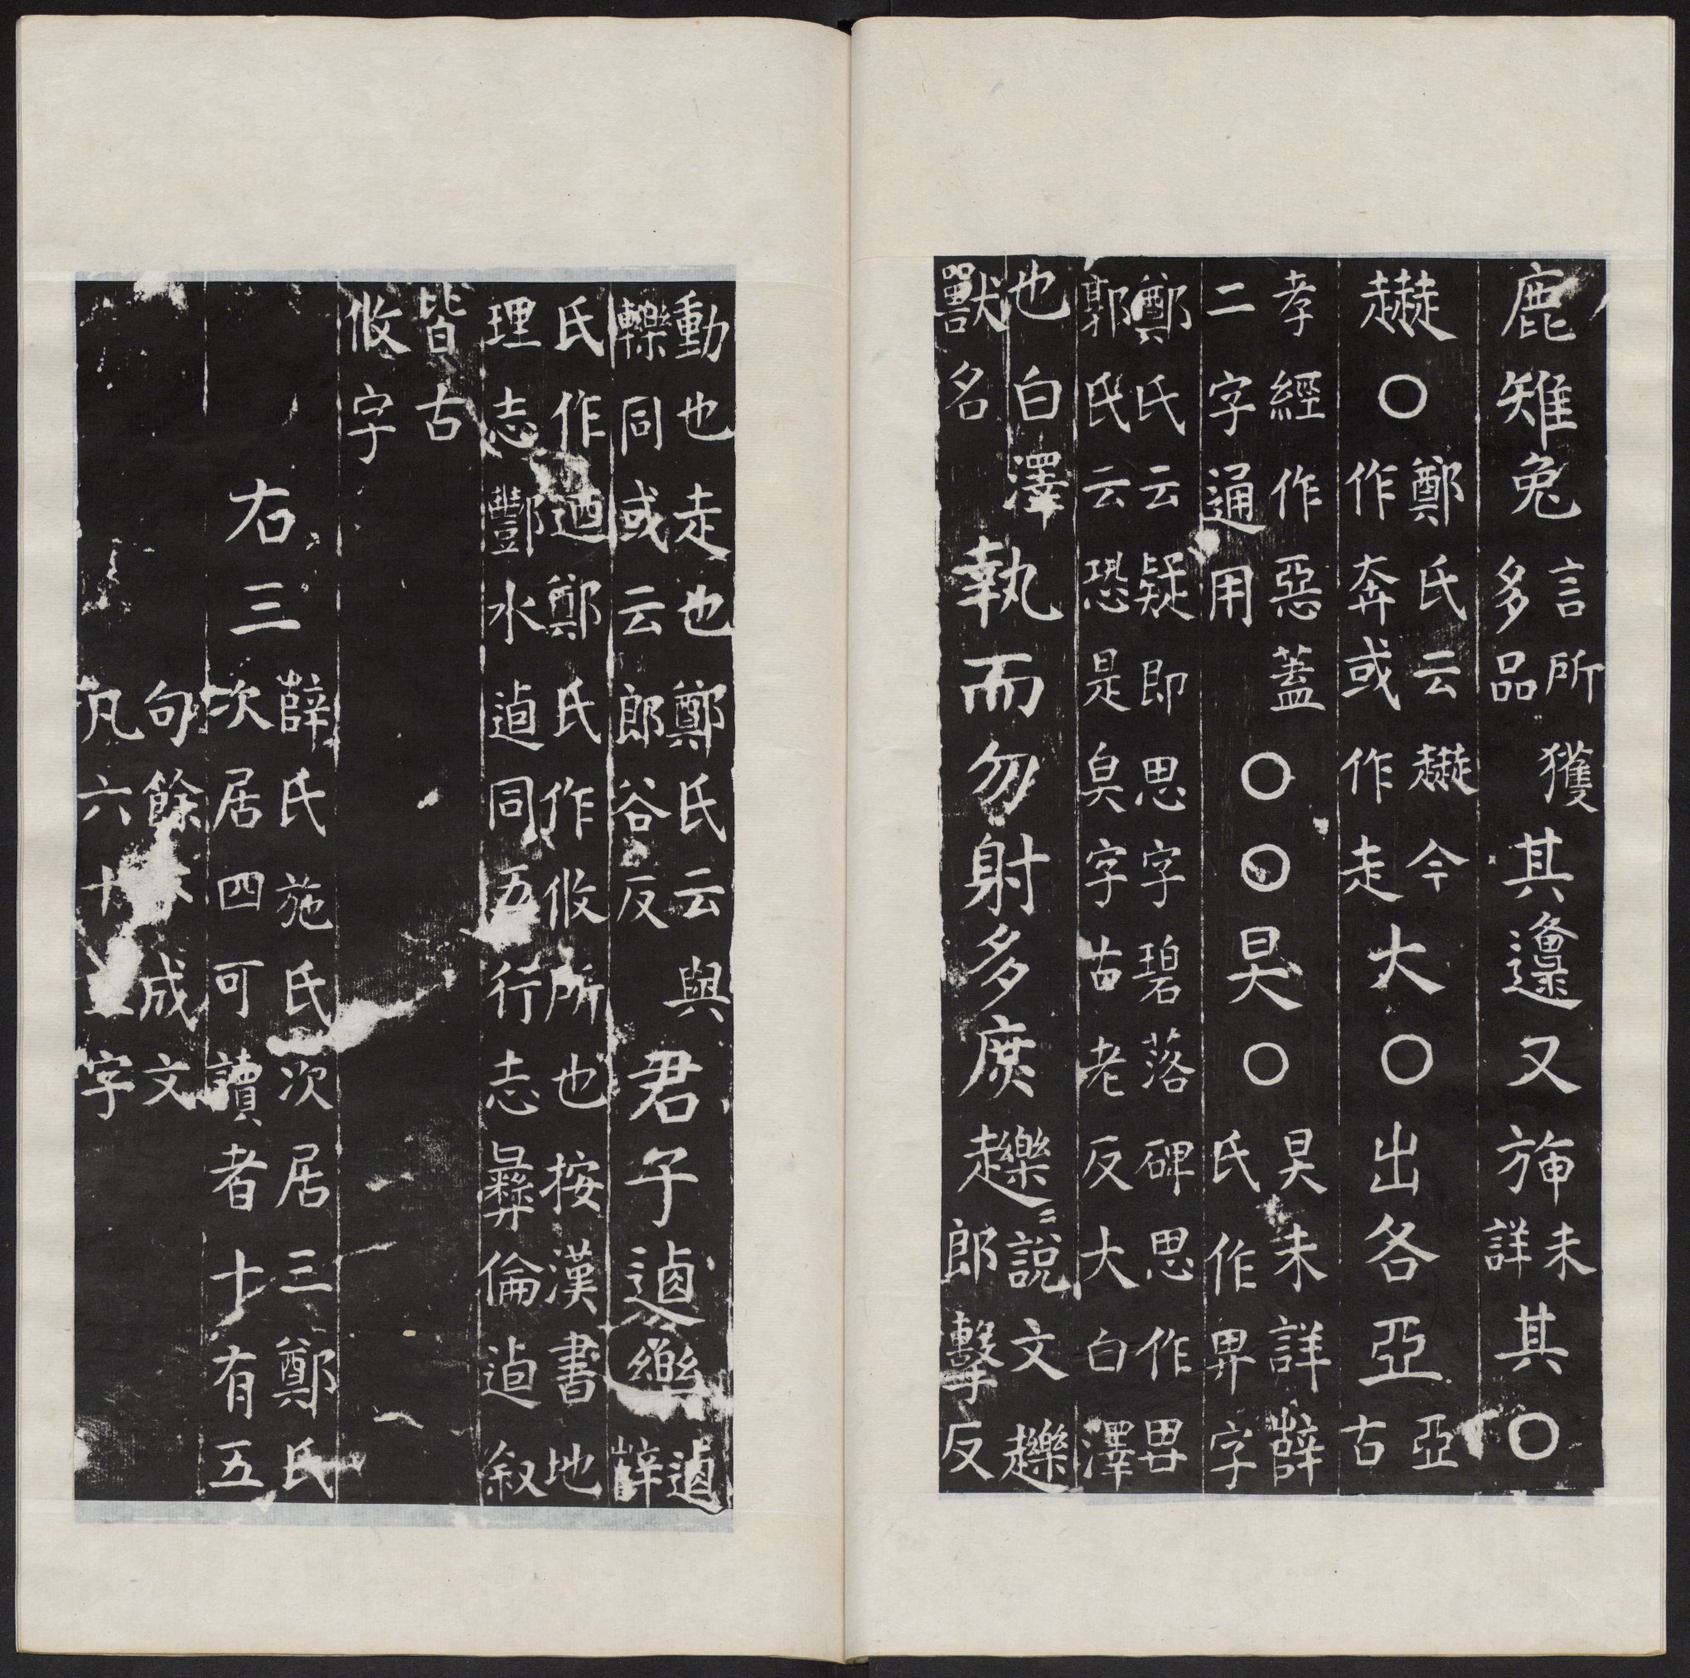 鹿雉兔言所獲多品其邍又旃未詳其○
趩○鄭氏云趩今作奔或作走大○出各亞亞古
孝經作惡蓋二字通用○○昊○昊未詳薛氏作界字
鄭氏云疑即思字碧落碑思作䍃郭氏云恐是臭字古老反大白澤
也白澤獸名執而勿射多庶趮=說文趮郎擊反
動也走也鄭氏云與轢同或云郎谷反君子逌樂逌薛
氏作迺鄭氏作攸所也按漢書地理志酆水逌同五行志彝倫逌敘
皆古攸字
右三薛氏施氏次居三鄭氏次居四可讀者十有五
句餘成文凡六字